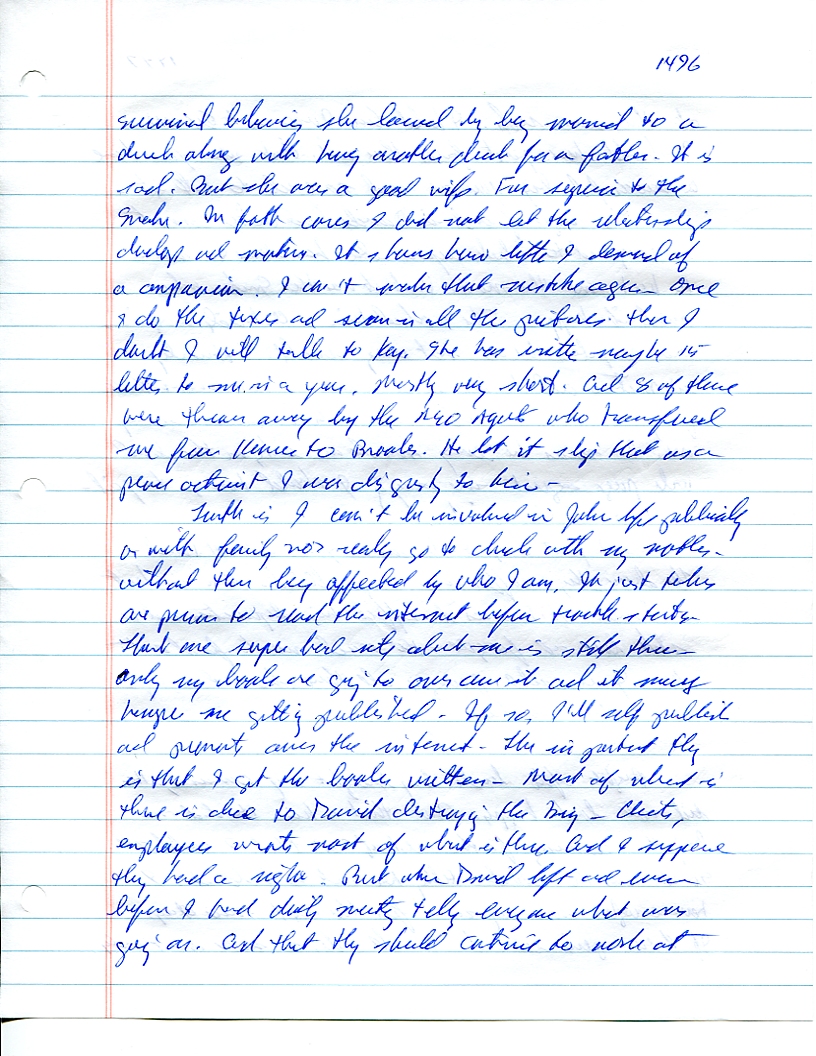 1496
survival behaviors she learned by being married to a
drunk along with having another drunk for a father. It is
sad. But she was a good wife. For service to the
In both cases I did not let the relationship
develop and mature. It shows how little I demand of
a companion. I can't make that mistake again - Once
I do the taxes and scan in all the pictures. then I
doubt I will talk to Kay. She has written maybe 15
letters to me in a year. Mostly very short. And 8 of them
were thrown away by the Agents who transferred
me from to He let it slip that as a
peace activist I was disgusting to him -
Truth is I can't be involved in John life publically
or with family nor really go to church with my mother -
without them being affected by who I am. It just takes
one person to read the internet before trouble starts -
That one super bad site about me is still there -
only my books are going to over come it and it may
hamper me getting published - If so, I'll self publish
and promote over the internet - The important thing
is that I get the books written - Most of what is
there is due to David destroying the - Clients,
employees wrote most of what is there. And I suppose
they had a right. But when David left and even
before I had daily meeting telling everyone what was
going on. And that they should continue to work at